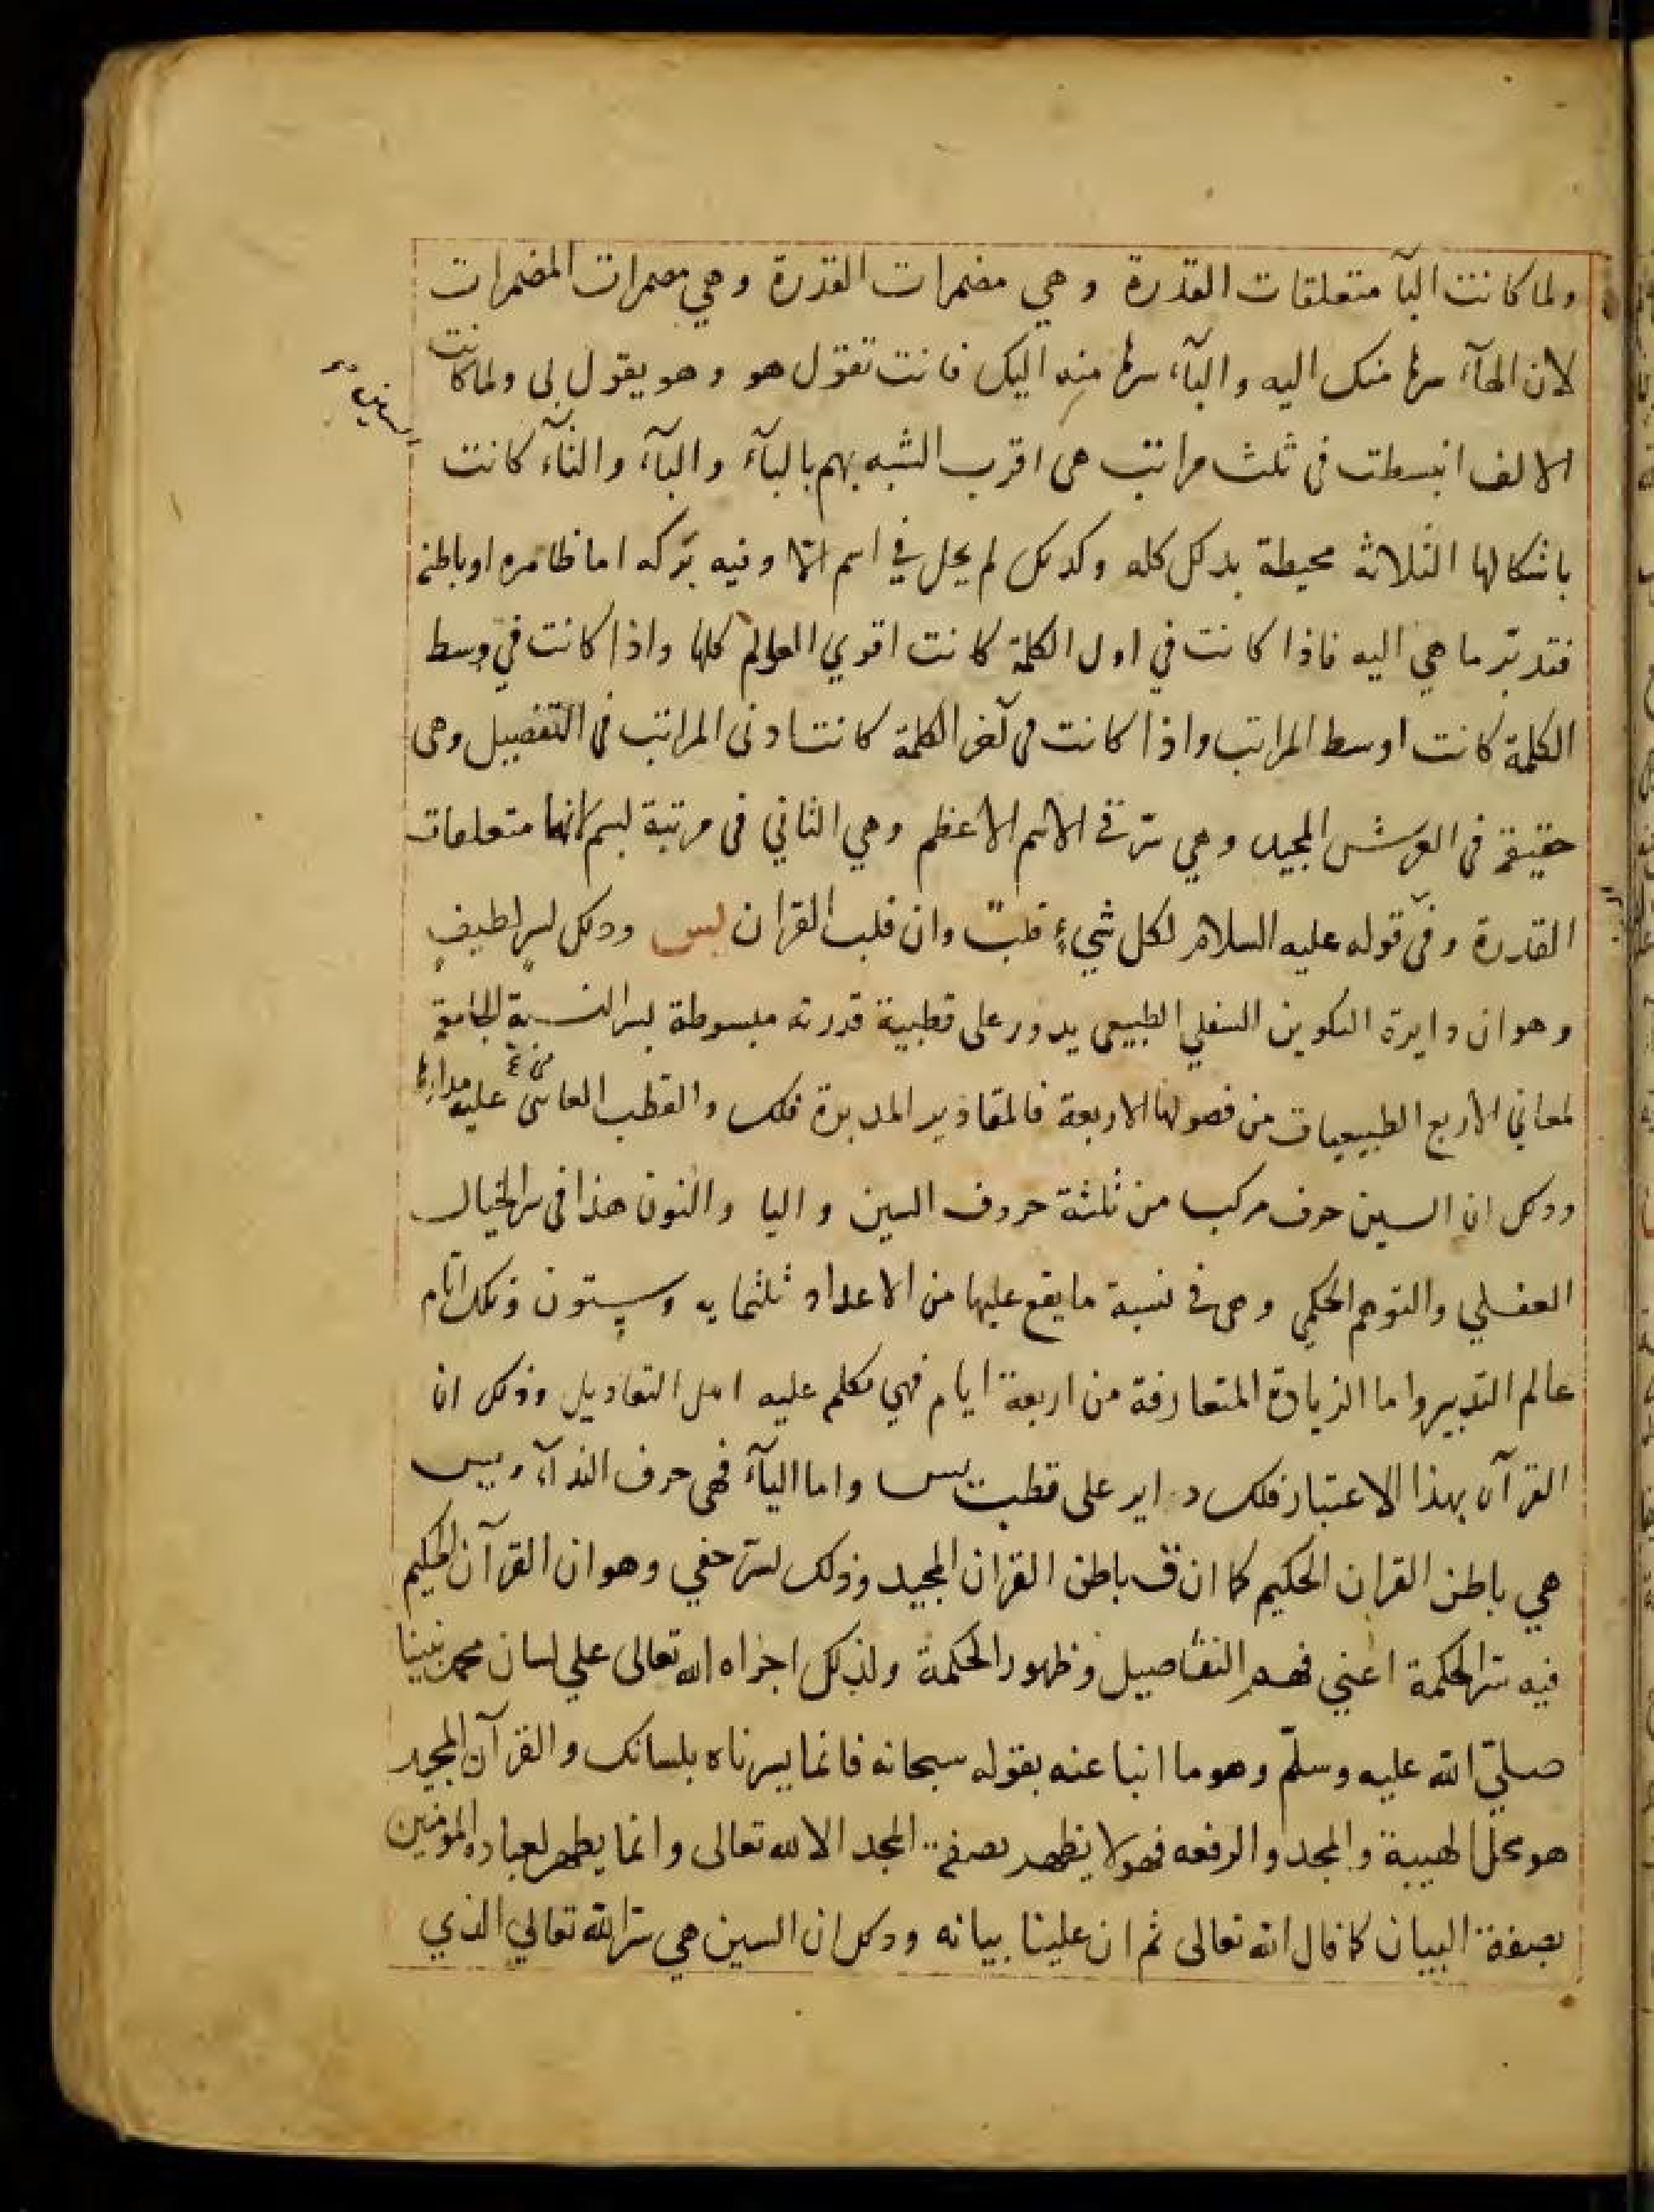 ولما كانت البآ متعلقات القدرة وهي مضمرات القدرة وهي مضمرات المضمرات
لان الهآء سرها منك اليه والبآء سرها منه اليك فانت تقول هو وهو يقول لي ولما كانت
الالف انبسطت فى ثلث مراتب هى اقرب الشبه بهم بالبآء والبآء والثآء كانت
باشكالها الثلاثة محيطة بدلكل كله وكدلك لم يحل في اسم الا وفيه بركه اما ظاهره او باطنه
فتدبّر ما هي اليه فاذا كانت في اول الكلمة كانت اقوي العوالم كلها واذا كانت في وسط
الكلمة كانت اوسط المراتب واذا كانت فى آخر الكلمة كانت ادنى المراتب فى التفصيل وهى
حقيقة فى العرش المجيد وهي سرّ في الاسم الاعظم وهي الثاني فى مرتبة بسم لانها متعلقات
القدرة وفى قوله عليه السلام لكل شيءٍ قلبٌ وان قلب القران يس ودلك لسرٍ لطيفٍ
وهو ان دايرة التكوين السفلي الطبيعى يدور على قطبية قدرته مبسوطة بسر النسبة الجامعة
لمعاني الاربع الطبيعيات من فصولها الاربعة فالمقادير المدبرة فلك والقطب عليه مدارها
ودلك ان السين حرف مركب من ثلثة حروف السين واليا والنون هذا فى سر الخيال
العقلي والتوهم الحكمي وهى في نسبة ما يقع عليها من الاعداد ثلثمايه وستون وتلك ايّام
عالم التدبير واما الزيادة المتعارفة من اربعة ايام فهي تكلم عليه اهل التعاديل وذلك ان
القرآن بهذا الاعتبار فلك داير على قطب يس واما اليآء فهى حرف الندآء ويس
هي باطن القران الحكيم كما ان ق باطن القران المجيد وذلك لسرّ خفي وهو ان القرآن الحكيم
فيه سرّ الحكمة اعني فهم التفاصيل وظهور الحكمة ولذلك اجراه الله تعالى علي لسان محمد نبينا
صليّ الله عليه وسلّم وهو ما انبا عنه بقوله سبحانه فانما يسرناه بلسانك والقرآن المجيد
هو محل الهيبة والمجد والرفعه فهو لا يظهر بصفة المجد الا لله تعالى وانما يظهر لعباده المؤمنين
بصفة البيان كما قال الله تعالى ثم ان علينا بيانه ودلك ان السين هي سرّ الله تعالي الذي